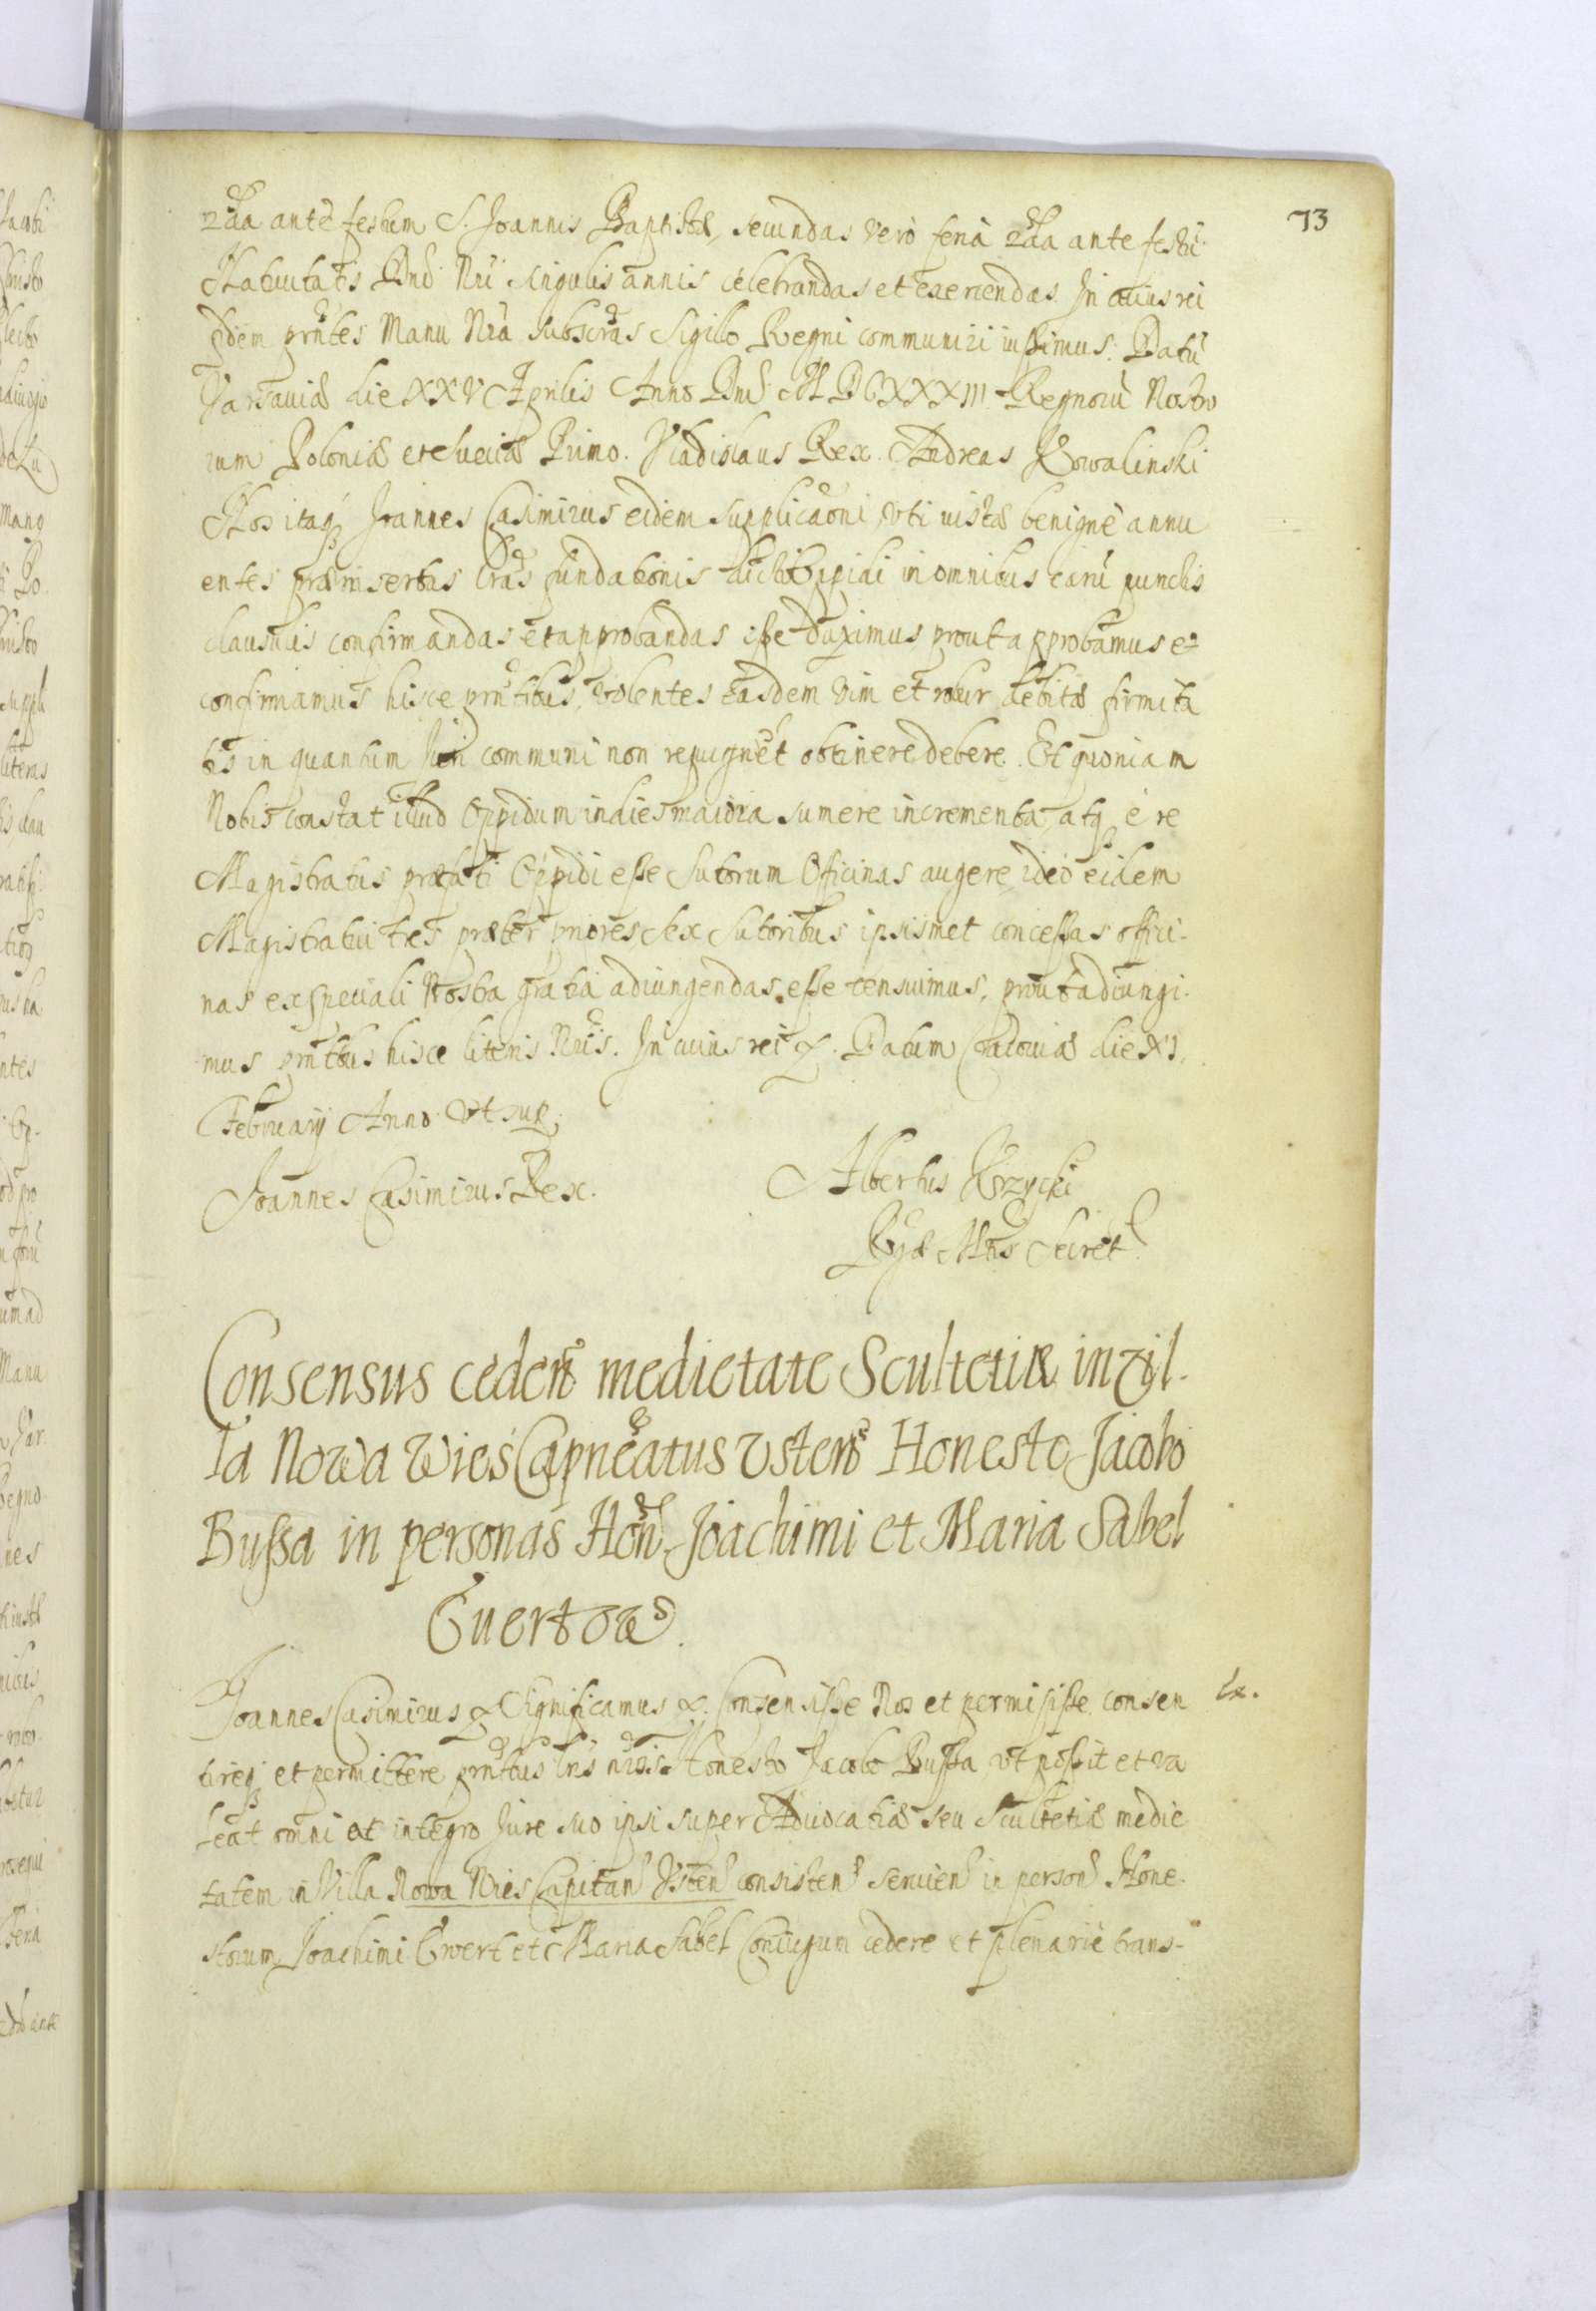 73
2da ante festum S. Joannis Baptistæ, secundas verò feria 2da ante festũ
Natiuitatis Dni Nri singulis annis celebrandas et exercendas. In cuius rei
fidem prntes Manu Nra subscras Sigillo Regni communiri iussimus. Datũ
Varsauiæ die XXV Aprilis Anno Dni MDCXXXIII Regnorũ Nostro
rum Poloniæ et Sueciæ Primo. Vladislaus Rex. Andreas Kowalinski
Nos itaq Joannes Casimirus eidem supplicaoni, vti iustæ benignè annu
entes præinsertas lras fundationis dicti Oppidi in omnibus earũ punctis
clausulis confirmandas et approbandas esse duximus prout approbamus et
confirmamus hisce prntibus, volentes easdem vim et robur debitæ firmita
tis in quantum Juri communi non repugnet obtinere debere. Et quoniam
Nobis constat illud Oppidum indies maiora sumere incrementa, atq è re
Magistratus præfati Oppidi esse Sutorum Officinas augere, ideò eidem
Magistratui tres præter priores sex Sutoribus ipsismet concessas offici-
nas ex speciali Nostra gratia adiungendas esse censuimus, prout adiungi-
mus prntibus hisce literis Nris. In cuius rei &. Datum Cracouiæ die XI.
Februarij Anno vt sup.
Joannes Casimirus Rex.
Albertus Krzycki
Rgiæ Mtis Secret.
Consensus ceden medietate Scultetiæ in vil-
la Nowa Wieś Capneatus Vsten Honesto Jacobo
Bussa in personas Hon Joachimi et Maria Sabel
Evertow.
Joannes Casimirus & Significamus &. Consensisse Nos et permisisse consen
tireq et permittere prntibus lris nris Honesto Jacobo Bussa, vt possit et va
leat omni et integro Jure suo ipsi super Aduocatiæ seu Scultetiæ medie
tatem in Villa Nowa Wies Capitan Vsten consisten seruien in person Hone-
storum Joachimi Ewert et Maria Sabel Coniugum cedere et plenariè trans-